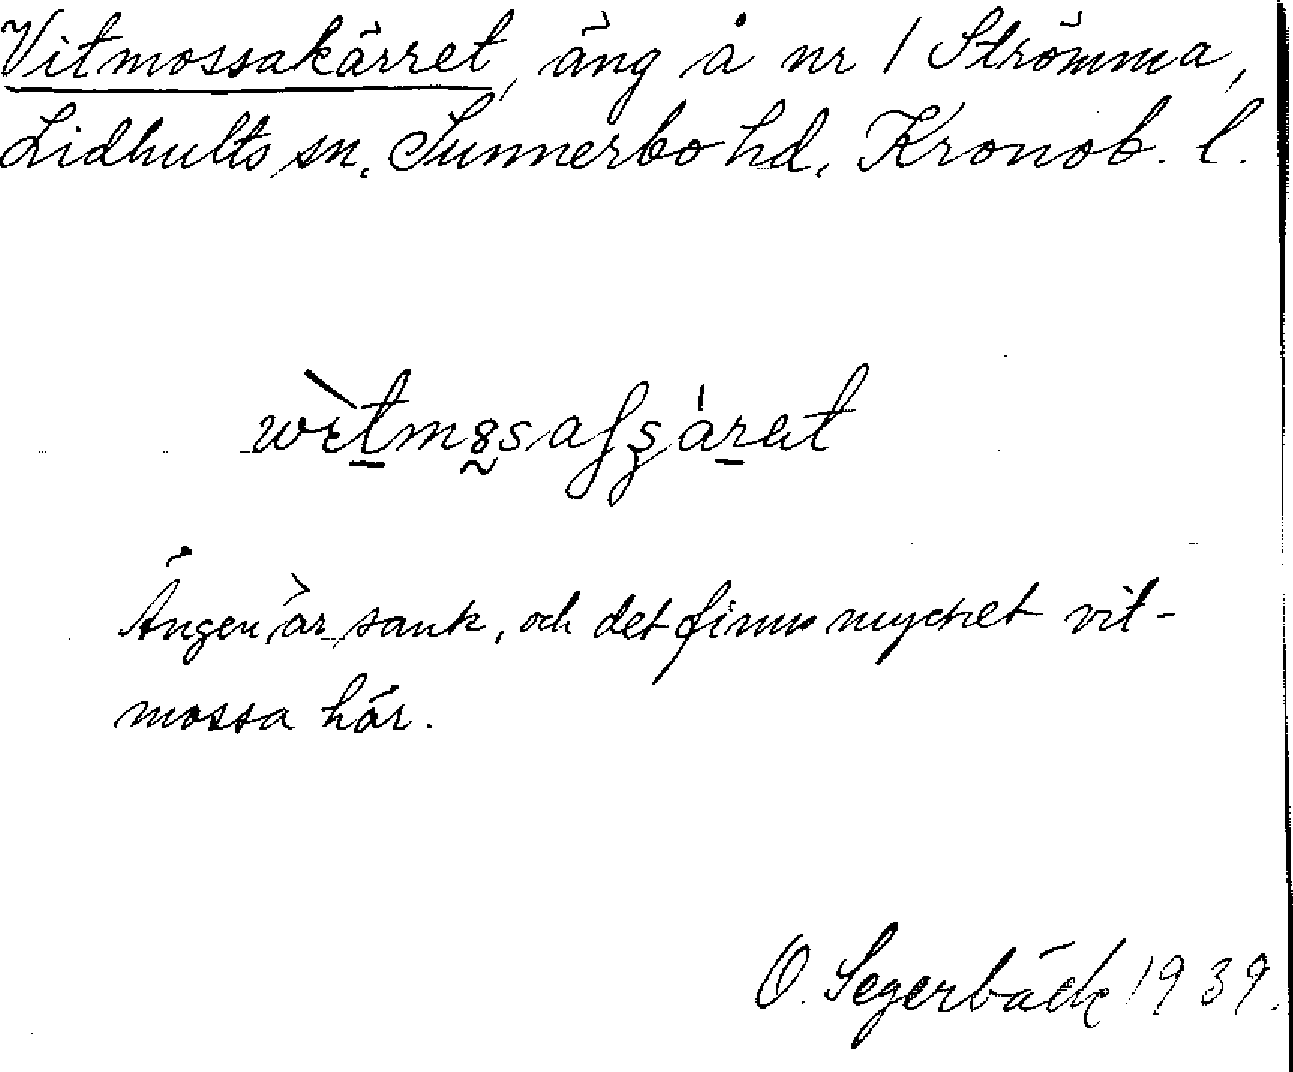 Vitmossakärret, äng å nr 1 Strömma,
Lidhults sn. Sunnerbo hd. Kronob. l.
Ängen är sank, och det finns mycket vit-
mossa här.
O. Segerbäck 1939.